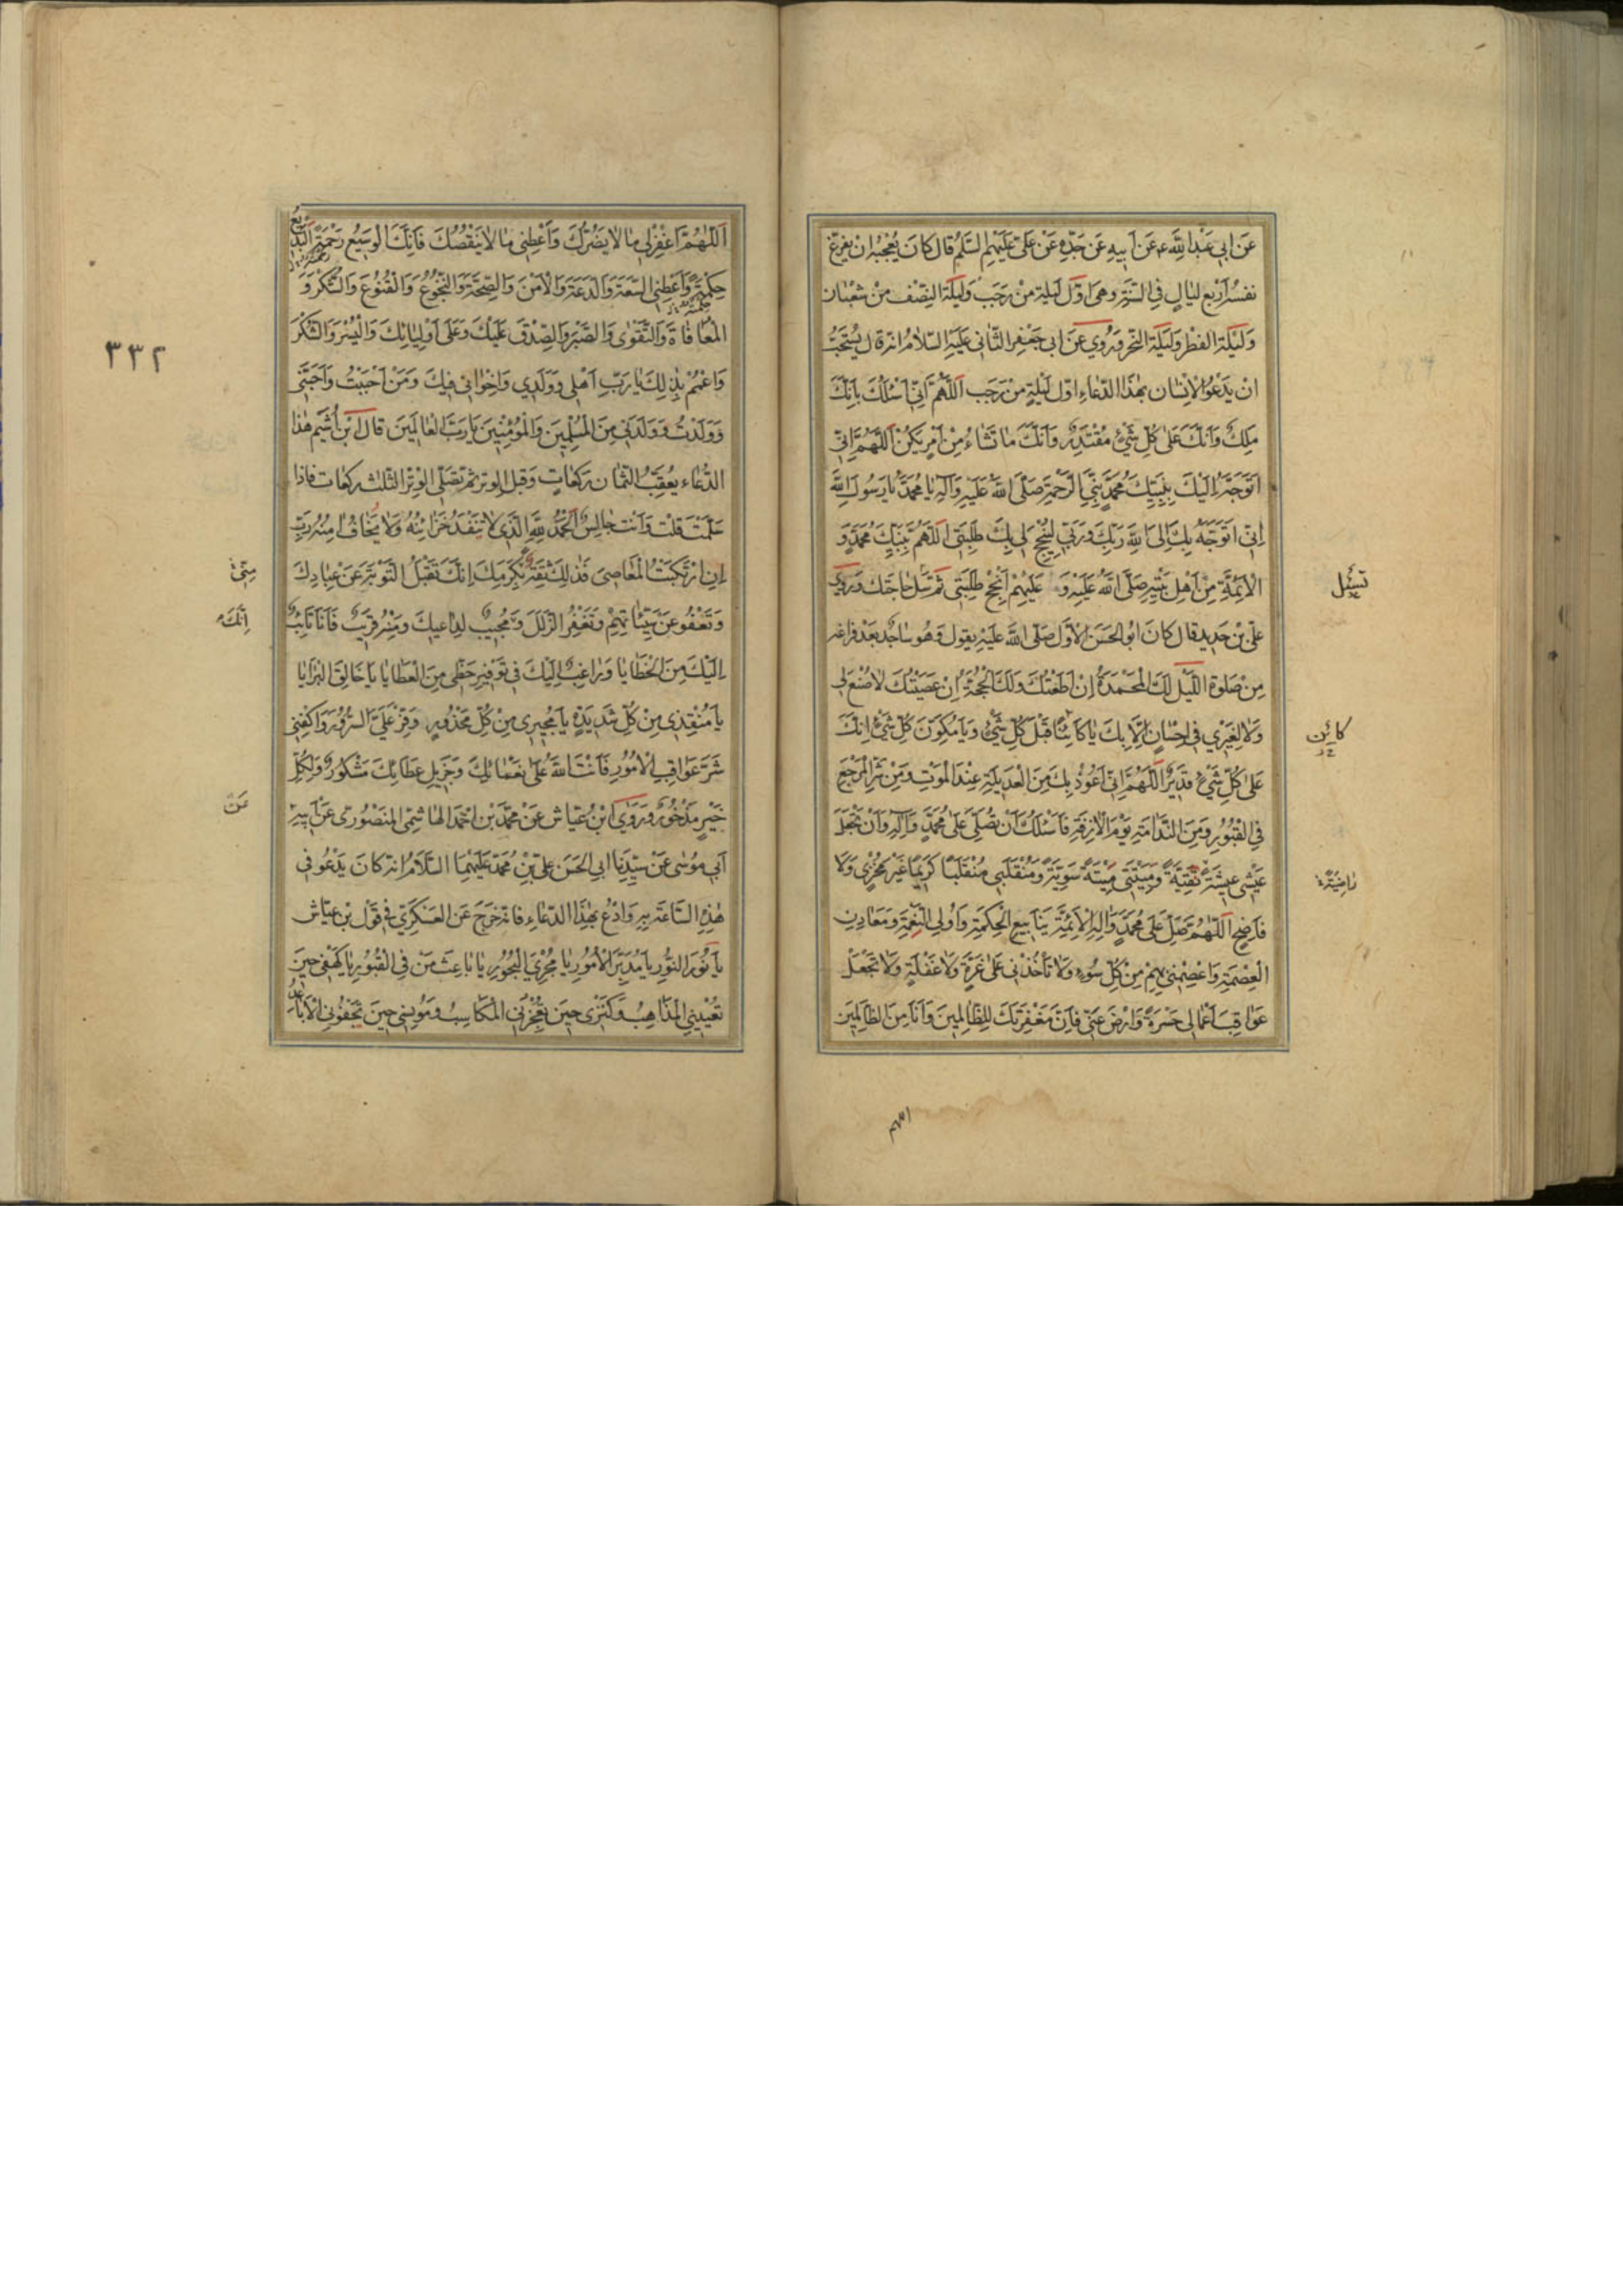 عَنْ اَبي عَبْدِ اللّٰهِ عَنْ اَبيهِ عَنْ جَدِّهِ عَنْ عَلِىّ عَلَيْهِمُ السَّلٰمُ قالَ كانَ يُعْجِبُهُ اَنْ يُفَرِّغَ
نفسَهُ اَرْبَعَ لَيٰالٍ فِي السَّنَةِ وهىَ اوّلُ لَيلةٍ منْ رَجَبَ وَلَيلَةُ النِّصْفِ منْ شَعْبٰان
وَلَيْلَةُ الفطْرِ وَلَيْلَةُ النَّحْرِ وَرُوِيَ عَنْ ابى جَعْفرٍ الثّانى عَلَيْهِ السّلامُ انّه قال يُسْتَحَبُّ
انْ يَدْعُوَ الاِنْسٰان بِهٰذَا الدّعٰاءِ اوّل لَيْلَةٍ مِنْ رَجَب اَللّٰهُمَّ اِنّى اَسْئَلُكَ بِاَنَّكَ
مَلِكٌ وَاَنَّكَ عَلىٰ كُلِّ شَيْءٍ مُقْتَدِرٌ وَاَنَّكَ مٰا تَشٰاءُ مِنْ اَمْرٍ يَكُنْ اَللّٰهُمَّ اِنّى
اَتَوَجَّهُ اِلَيْكَ بِنَبِيِّكَ مُحَمَّدٍ نَبِيِّ الرَّحْمَةِ صَلَّى اللّٰهُ عَلَيْهِ وَآلِهِ يٰا مُحَمَّدُ يٰا رَسُولَ اللّٰهِ
اِنّى اَتَوَجَّهُ بِكَ اِلَى اللّٰهِ رَبِّكَ وَرَبّى لِيُنْجِحَ لى بِكَ طَلِبَتى اَللّٰهُمَّ بِنَبِيِّكَ مُحَمَّدٍ وَ
الاَئِمَّةِ مِنْ اَهْلِ بَيْتِهِ صَلَّى اللّٰهُ عَلَيْهِ وَ عَلَيْهِمْ اَنْجِحْ طَلِبَتى ثمّ تسَل حٰاجَتك وَرَوىٰ
تسئل
علىّ بْن حَديدٍ قال كانَ ابوُ الحَسَنِ الاَوّل صَلّى اللّٰه عَليْهِ يقول وَهُو سٰاجدٌ بَعْد فراغه
مِنْ صَلوةِ اللَّيْلِ لَكَ الْمَحْمَدَةُ اِنْ اَطَعْتُكَ وَلَكَ الْحُجَّةُ اِنْ عَصَيْتُكَ لاٰ صُنْعَ لى
وَلاٰ لِغَيْري في اِحْسٰانٍ اِلّاٰ بِكَ يٰا كٰائِنًا قَبْلَ كُلِّ شَيْءٍ وَيٰا مُكَوِّنَ كُلِّ شَيْءٍ اِنَّكَ
كائِن
عَلىٰ كُلِّ شَيْءٍ قَديرٌ اَللّٰهُمَّ اِنّى اَعُوذُ بِكَ مِنَ الْعَديلَةِ عِنْدَ الْمَوْتِ وَمِنْ شَرِّ الْمَرْجِعِ
فِي الْقُبُورِ وَمِنَ النَّدٰامَةِ يَوْمَ الْاٰزِفَةِ فَاَسْئَلُكَ اَنْ تُصَلِّيَ عَلىٰ مُحَمَّدٍ وَاٰلِهِ وَاَنْ تَجْعَلَ
عَيْشى عيشَةً نَقِيَّةً وَمَيْتَتى مَيْتَةً سَوِيَّةً وَمُنْقَلَبى مُنْقَلَبًا كَريمًا غَيْرَ مُخْزٍى وَلاٰ
فٰاضِحٍ اَللّٰهُمَّ صَلِّ عَلىٰ مُحَمَّدٍ وَاٰلِهِ الْاَئِمَّةِ يَنٰابيعِ الْحِكْمَةِ وَاُولِى النِّعْمَةِ وَمَعٰادِنِ
الْعِصْمَةِ وَاعْصِمْني بِهِمْ مِنْ كُلِّ سُوءٍ وَلاٰ تَأْخُذْنى عَلىٰ غِرَّةٍ وَلاٰ غَفْلَةٍ وَلاٰ تَجْعَلْ
عَوٰاقِبَ اَعْمٰالى حَسْرَةً وَارْضَ عَنّى فَاِنَّ مَغْفِرَتَكَ لِلظّٰالِمينَ وَاَنَا مِنَ الظّٰالِمينَ
اللهم
اَللّٰهُمَّ اغْفِرْ لى مٰا لاٰ يَضُرُّكَ وَاَعْطِنى مٰا لاٰ يَنْقُصُكَ فَاِنَّكَ الْوَسيعُ رَحْمَتُهُ الْبَديعُ
حِكْمَتُهُ وَاَعْطِنِى السَّعَةَ وَالدَّعَةَ وَالْاَمْنَ وَالصِّحَّةَ وَالنُّجُوعَ وَالْقُنُوعَ وَالشُّكْرَ وَ
الْمُعٰافٰاةَ وَالتَّقْوٰى وَالصَّبْرَ وَالصِّدْقَ عَلَيْكَ وَعَلىٰ اَوْلِيٰائِكَ وَالْيُسْرَ وَالشُّكْرَ
٣٣٢
وَاعْمُمْ بِذٰلِكَ يٰا رَبِّ اَهْلى وَوَلَدى وَاِخْوٰانى فيكَ وَمَنْ اَحْبَبْتُ وَاَحَبَّنى
وَوَلَدْتُ وَوَلَدَنى مِنَ الْمُسْلِمينَ وَالْمُؤْمِنينَ يٰا رَبَّ الْعٰالَمينَ قالَ ابْن اُشَيم هٰذا
الدّعٰاء يعْقبُ الثّمان رَكعٰاتٍ وَقبل الوتر ثمّ تصَلّى الوِتْر الثّلٰث ركعٰات فاذا
سَلّمْتَ قلْتَ وَاَنْتَ جٰالِسٌ اَلْحَمْدُ لِلّٰهِ الَّذى لاٰ تَنْفَدُ خَزٰائِنُهُ وَلاٰ يَخٰافُ اٰمِنُهُ رَبِّ
اِنِ ارْتَكَبْتُ الْمَعٰاصِىَ فَذٰلِكَ ثِقَةٌ بِكَرَمِكَ اِنَّكَ تَقْبَلُ التَّوْبَةَ عَنْ عِبٰادِكَ
مِنّى
وَتَعْفُو عَنْ سَيِّئٰاتِهِمْ وَتَغْفِرُ الزَّلَلَ وَمُجيبٌ لِدٰاعيكَ وَمِنْهُ قَريبٌ فَاَنَا تٰائِبٌ
اِنَّكَ
اِلَيْكَ مِنَ الْخَطٰايٰا وَرٰاغِبٌ اِلَيْكَ فى تَوْفيرِ حَظّى مِنَ الْعَطٰايٰا يٰا خٰالِقَ الْبَرٰايٰا
يٰا مُنْقِذى مِنْ كُلِّ شَديدَةٍ يٰا مُجيرى مِنْ كُلِّ مَحْذُورٍ وَفِّرْ عَلَىَّ السُّرُورَ وَاكْفِنى
شَرَّ عَوٰاقِبِ الْاُمُورِ فَاَنْتَ اللّٰهُ عَلىٰ نَعْمٰائِكَ وَجَزيلِ عَطٰائِكَ مَشْكُورٌ وَلِكُلِّ
خَيْرٍ مَذْخُورٌ وَرَوَى ابْنُ عَيّاش عَنْ محمّدِ بْن احْمَد الهٰاشِمِّى المنصُورى عَنْ اَبيهِ
عَنْ
اَبى مُوسٰى عَنْ سَيِّدِنٰا ابى الحَسَن علىّ بْنِ مُحَمّد عَلَيْهِمَا السَّلاٰمُ انّه كانَ يَدْعُو فى
هٰذِهِ السّٰاعَةِ بِهِ وَادْعُ بِهٰذَا الدّعٰاءِ فانّه خرَجَ عَنِ العَسْكَرىّ فى قوْل بْن عَيّاش
يٰا نُورَ النُّورِ يٰا مُدَبِّرَ الْاُمُورِ يٰا مُجْرِيَ الْبُحُورِ يٰا بٰاعِثَ مَنْ فِي الْقُبُورِ يٰا كَهْفى حينَ
تُعْيينِى الْمَذٰاهِبُ وَكَنْزى حينَ تُعْجِزُنِى الْمَكٰاسِبُ وَمُونِسى حينَ تَجْفُونِى الْاَبٰاعِدُ